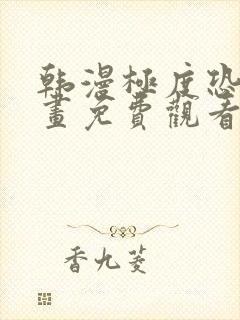 韩漫極度恐
畫免費觀看
香九菱